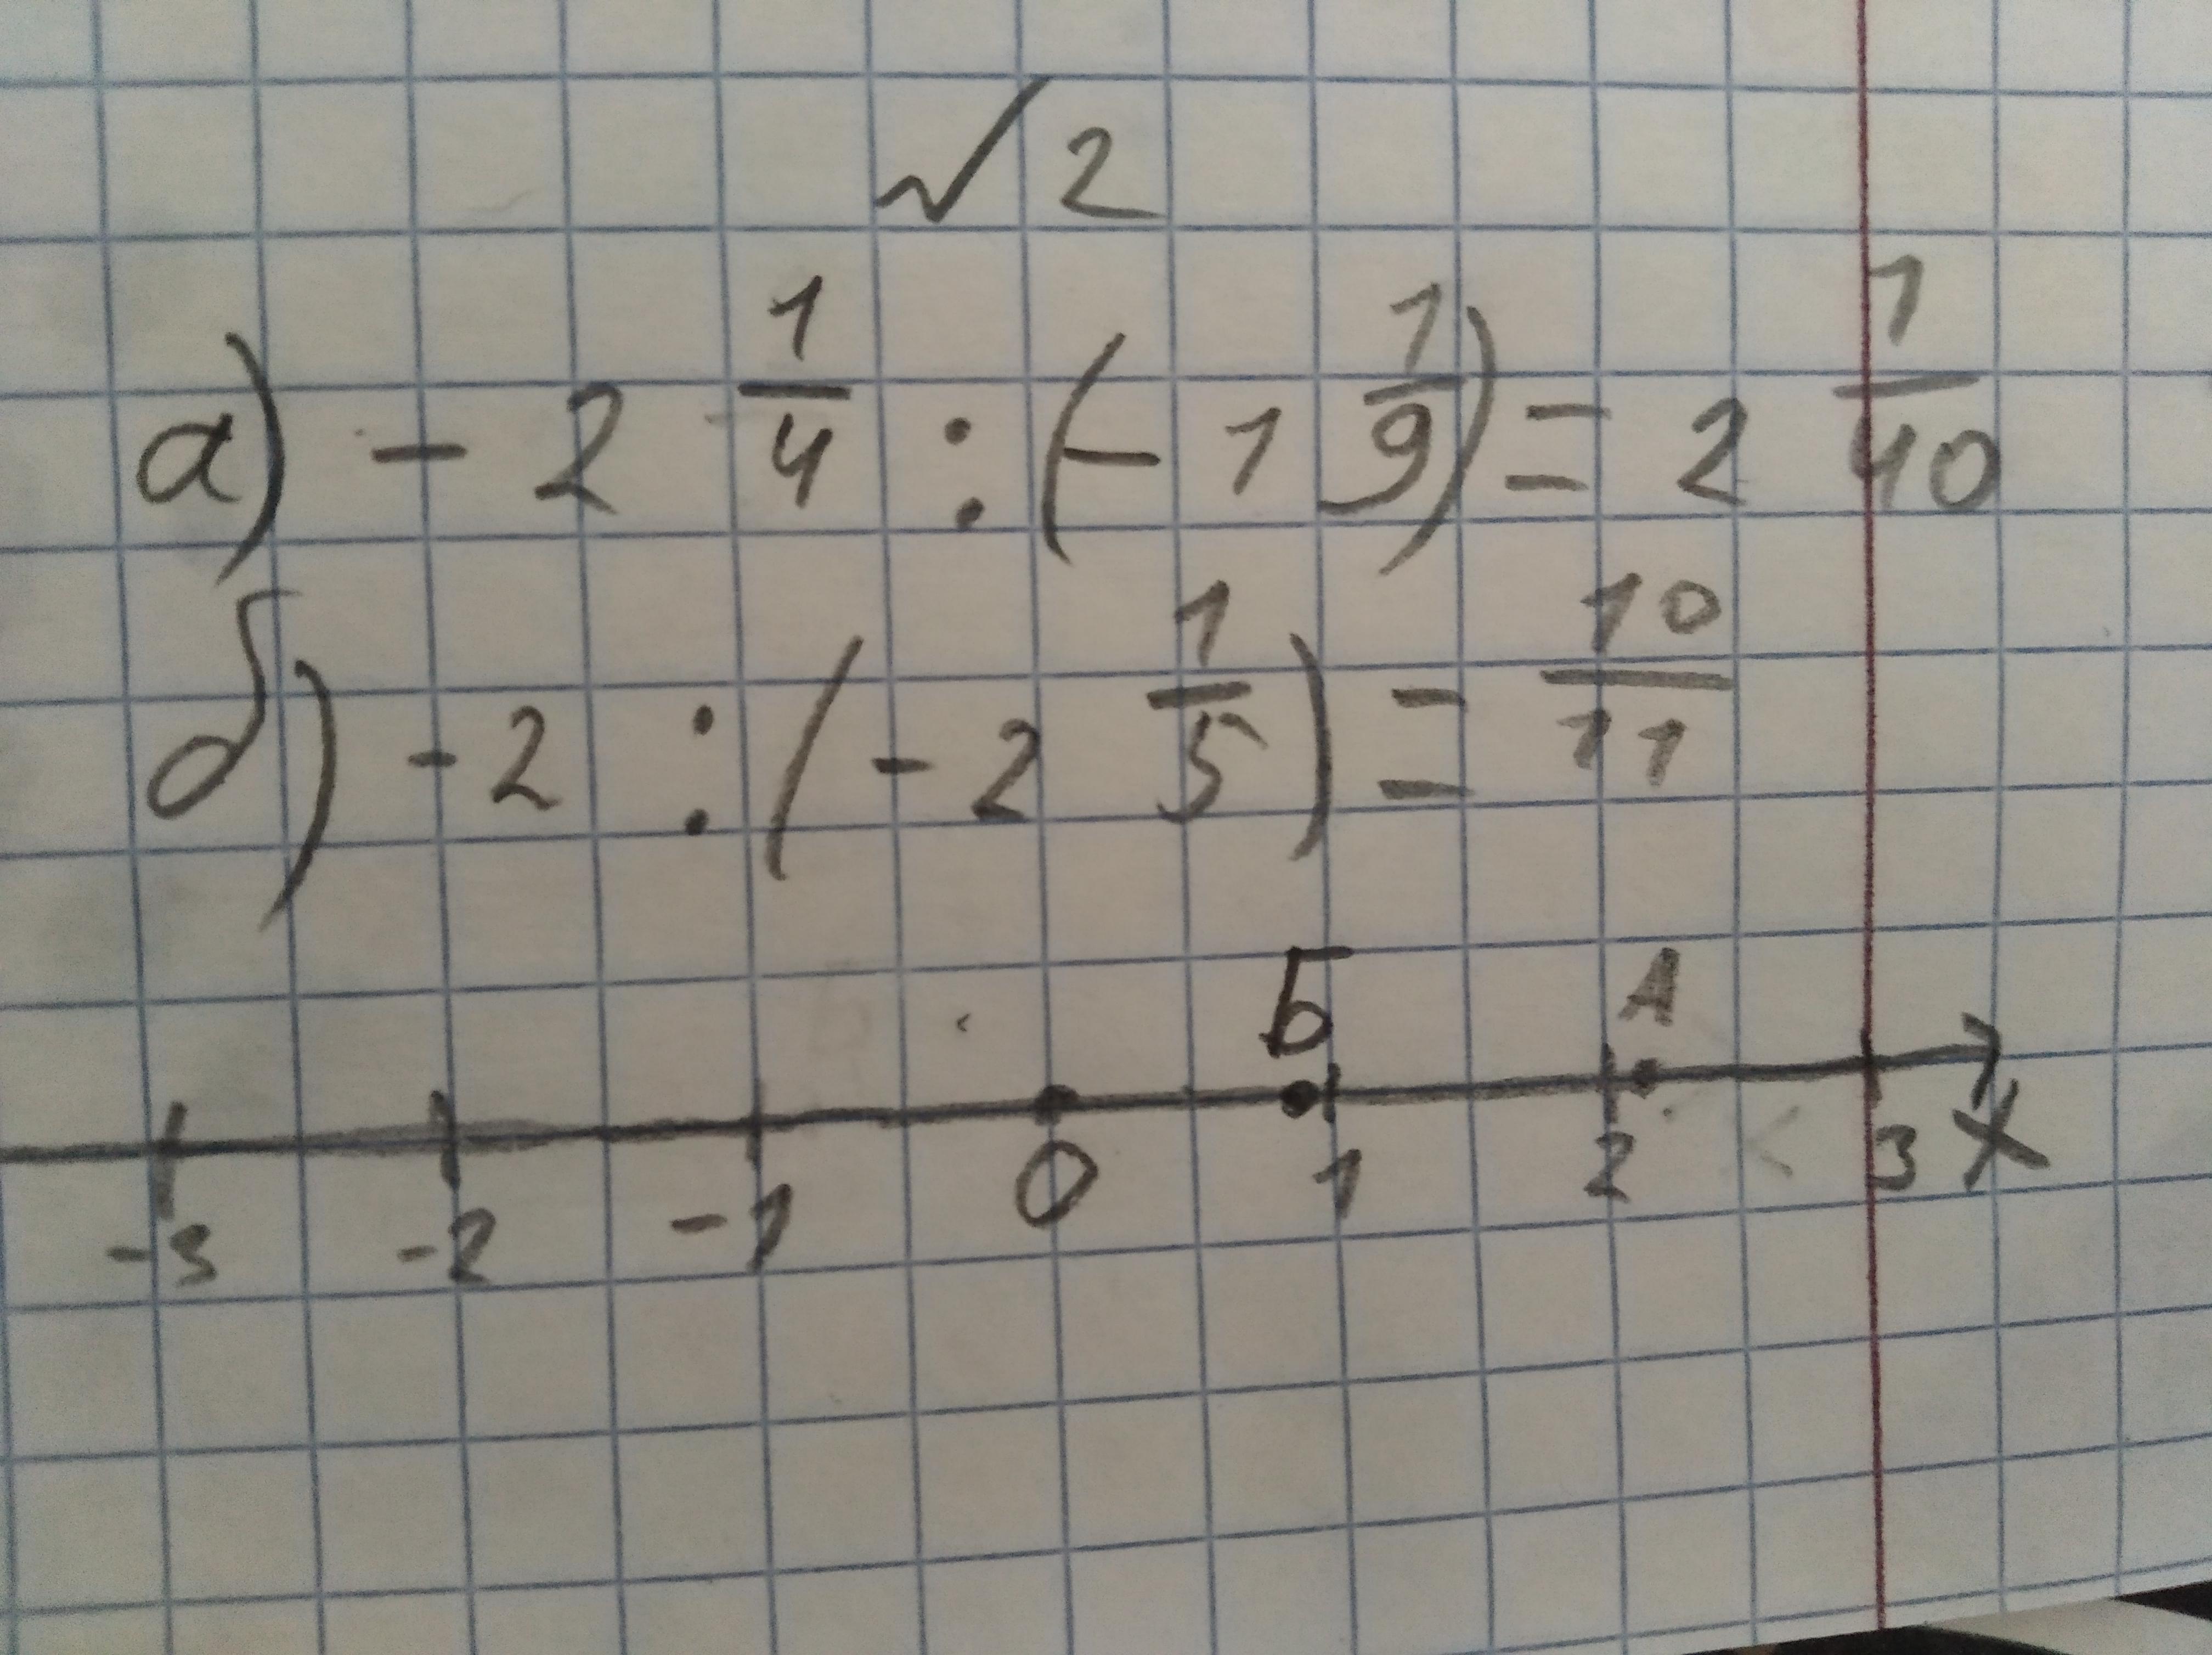 √ 2
а) - 2 1/4 : (- 1 1/9) = 2 1/40
б) -2 : (- 2 1/5) = 10/11
Б А
-3 -2 -1 0 1 2 3 X